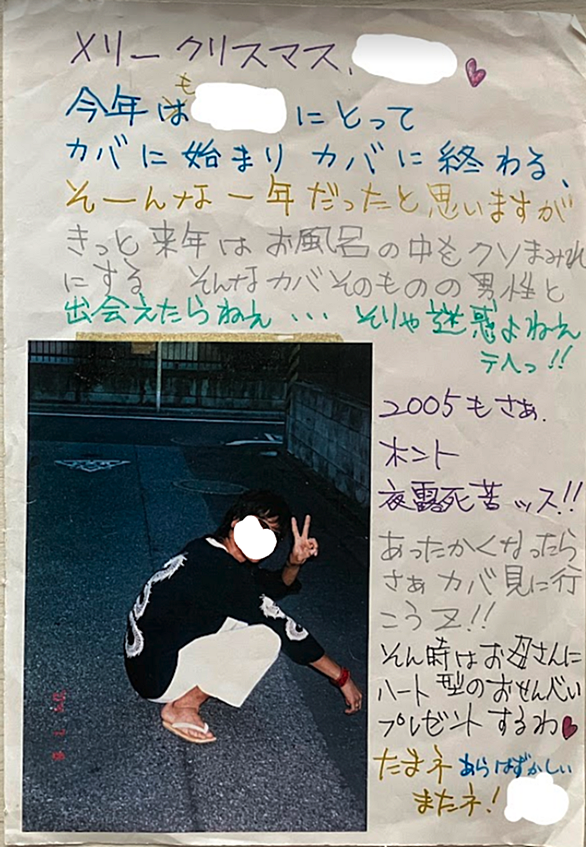 メリークリスマス、
今年は も にとって
カバに始まりカバに終わる、
そーんな一年だったと思いますが
きっと来年はお風呂の中をクソまみれ
にする そんなカバそのものの男性と
出会えたらねぇ・・・ そりゃ迷惑よねぇ
テヘっ!!
2005もさぁ、
ホント
夜露死苦ッス!!
あったかくなったら
さぁカバ見に行
こうZ!!
そん時はお母さんに
ハート型のおせんべい
プレゼントするわ
たまネ あらはずかしい
またネ!